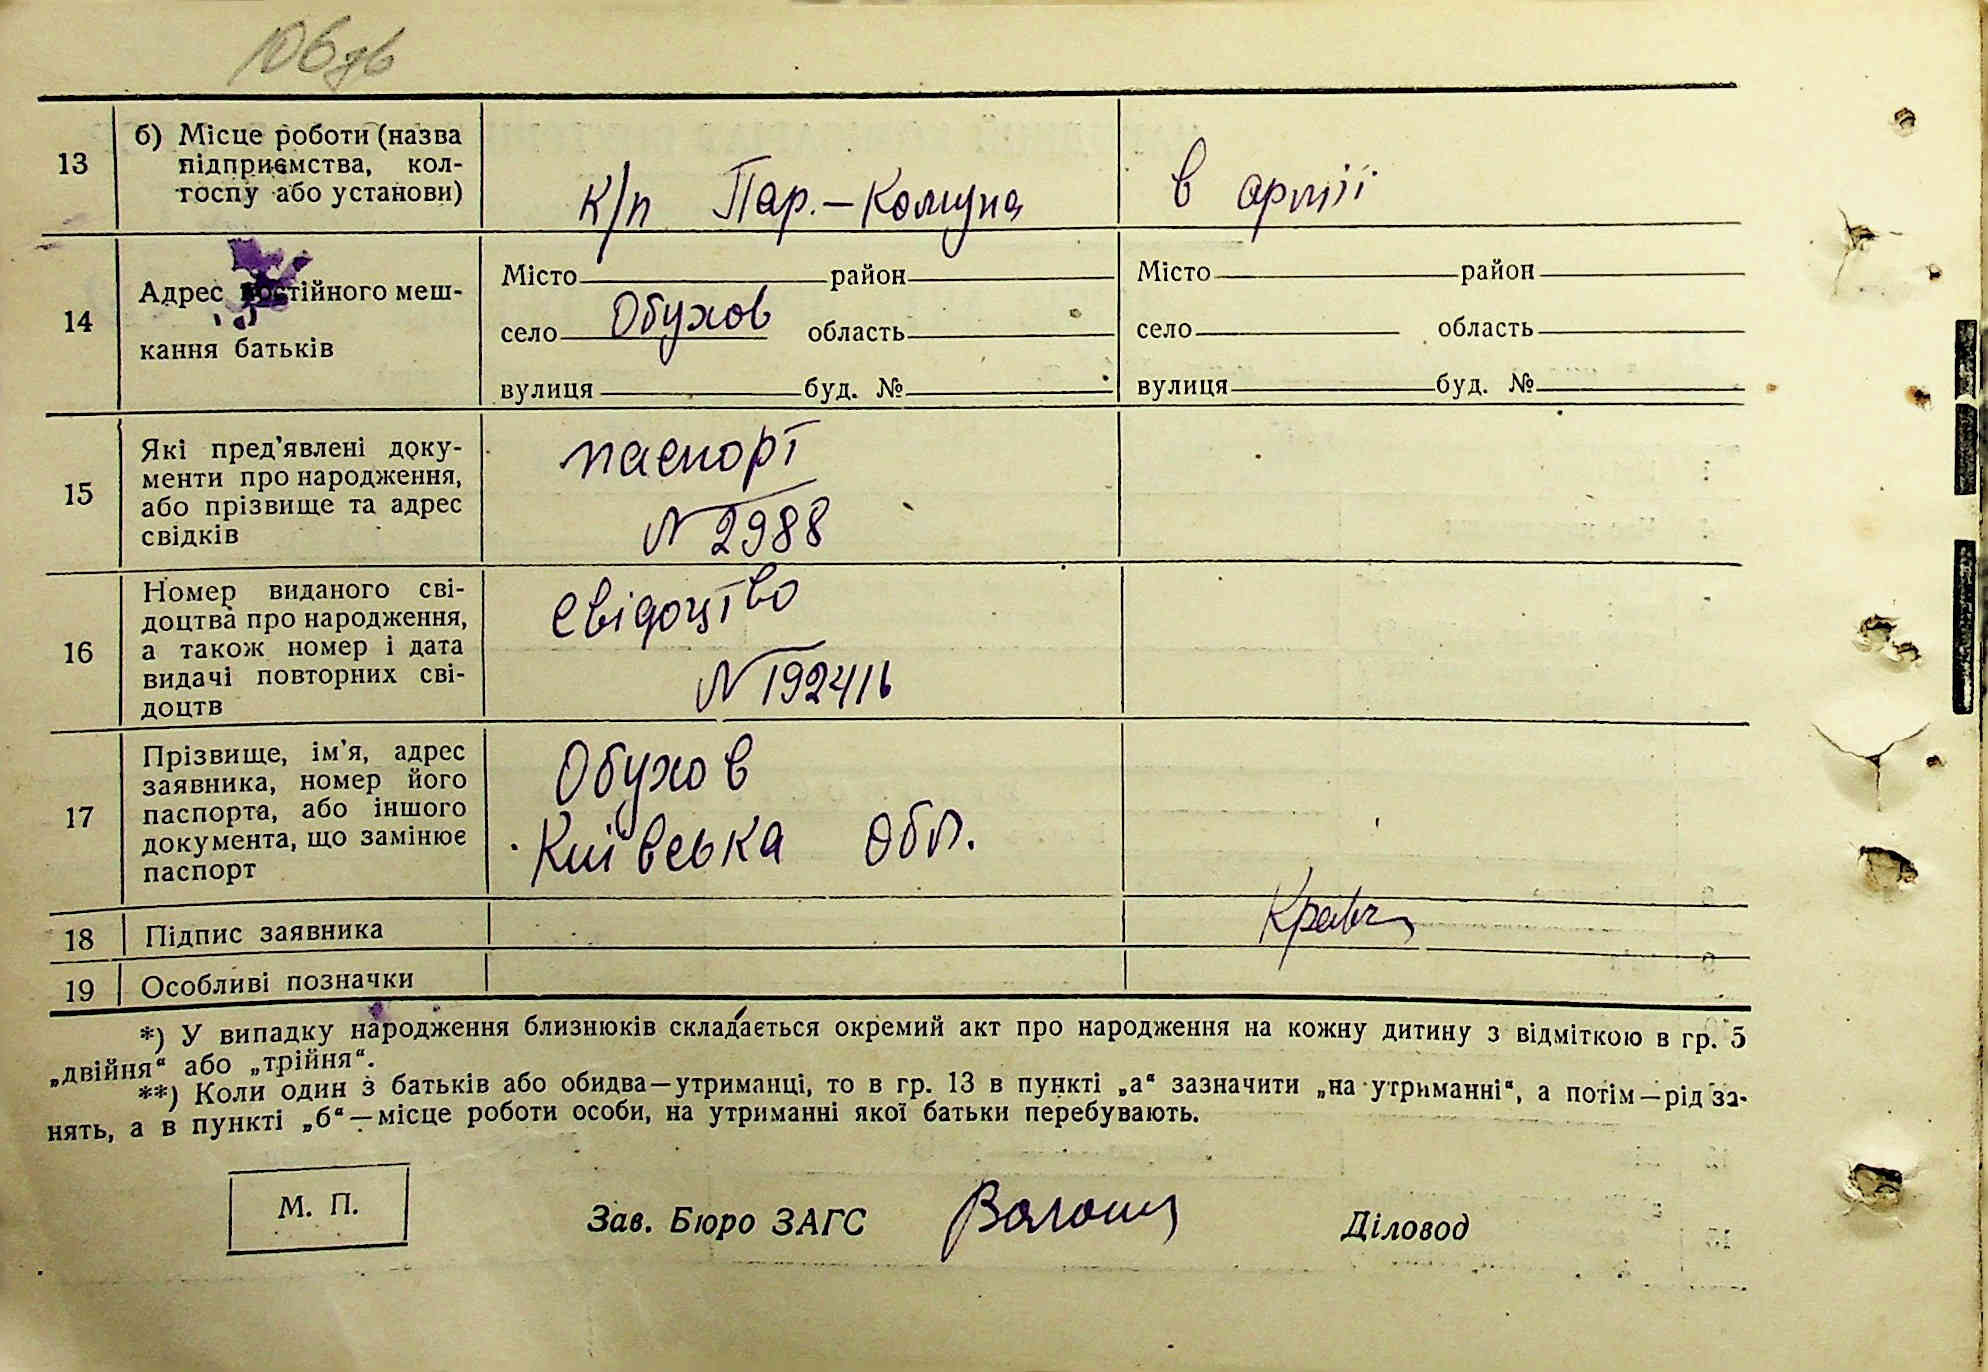 106 зв
13 б) Місце роботи (назва
підприємства, кол-
госпу або установи)
к/п Пар.-Комуна
в армії
14 Адрес постійного меш-
кання батьків
Місто район
село Обухов область
вулиця буд. №
Місто район
село область
вулиця буд. №
15 Які пред'явлені доку-
менти про народження,
або прізвище та адрес
свідків
паспорт
№ 2988
16 Номер виданого сві-
доцтва про народження,
а також номер і дата
видачі повторних сві-
доцтв
Свідоцтво
№ 192416
17 Прізвище, ім'я, адрес
заявника, номер його
паспорта, або іншого
документа, що замінює
паспорт
Обухов
Київська обл.
18 Підпис заявника
19 Особливі позначки
*) У випадку народження близнюків складається окремий акт про народження на кожну дитину з відміткою в гр. 5
„двійня“ або „трійня“.
**) Коли один з батьків або обидва—утриманці, то в гр. 13 в пункті „а“ зазначити „на утриманні“, а потім—рід за-
нять, а в пункті „б“—місце роботи особи, на утриманні якої батьки перебувають.
М. П.
Зав. Бюро ЗАГС
Діловод